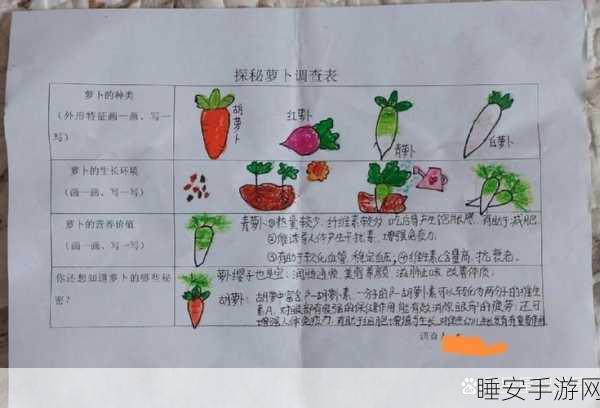 探秘萝卜调查表
萝卜的种类
（外形特征画一画、写一写）
胡萝卜
红萝卜
青萝卜
白萝卜
萝卜的生长环境
（画一画、写一写）
萝卜的营养价值
（画一画、写一写）
青萝卜①热量较少，纤维素较多，吃后易产生饱胀感，有助于减肥
②能诱导人体产生干扰素，增强免疫力
③有助于软化血管，稳定血压，④维生素C含量高，抗衰老。
你还想知道萝卜的哪些秘密？
萝卜缨子也是宝：润肠通便 美容养颜 滋阴 改善体质；
胡萝卜：胡萝卜中富含β-胡萝卜素，一分子的β-胡萝卜素可以转化为两分子的维生
素A，对眼部有很强的保健作用，能有效消除眼睛的疲劳；还可
增强人体免疫力，有助于细胞增殖与生长，
调查人
睡安手游网